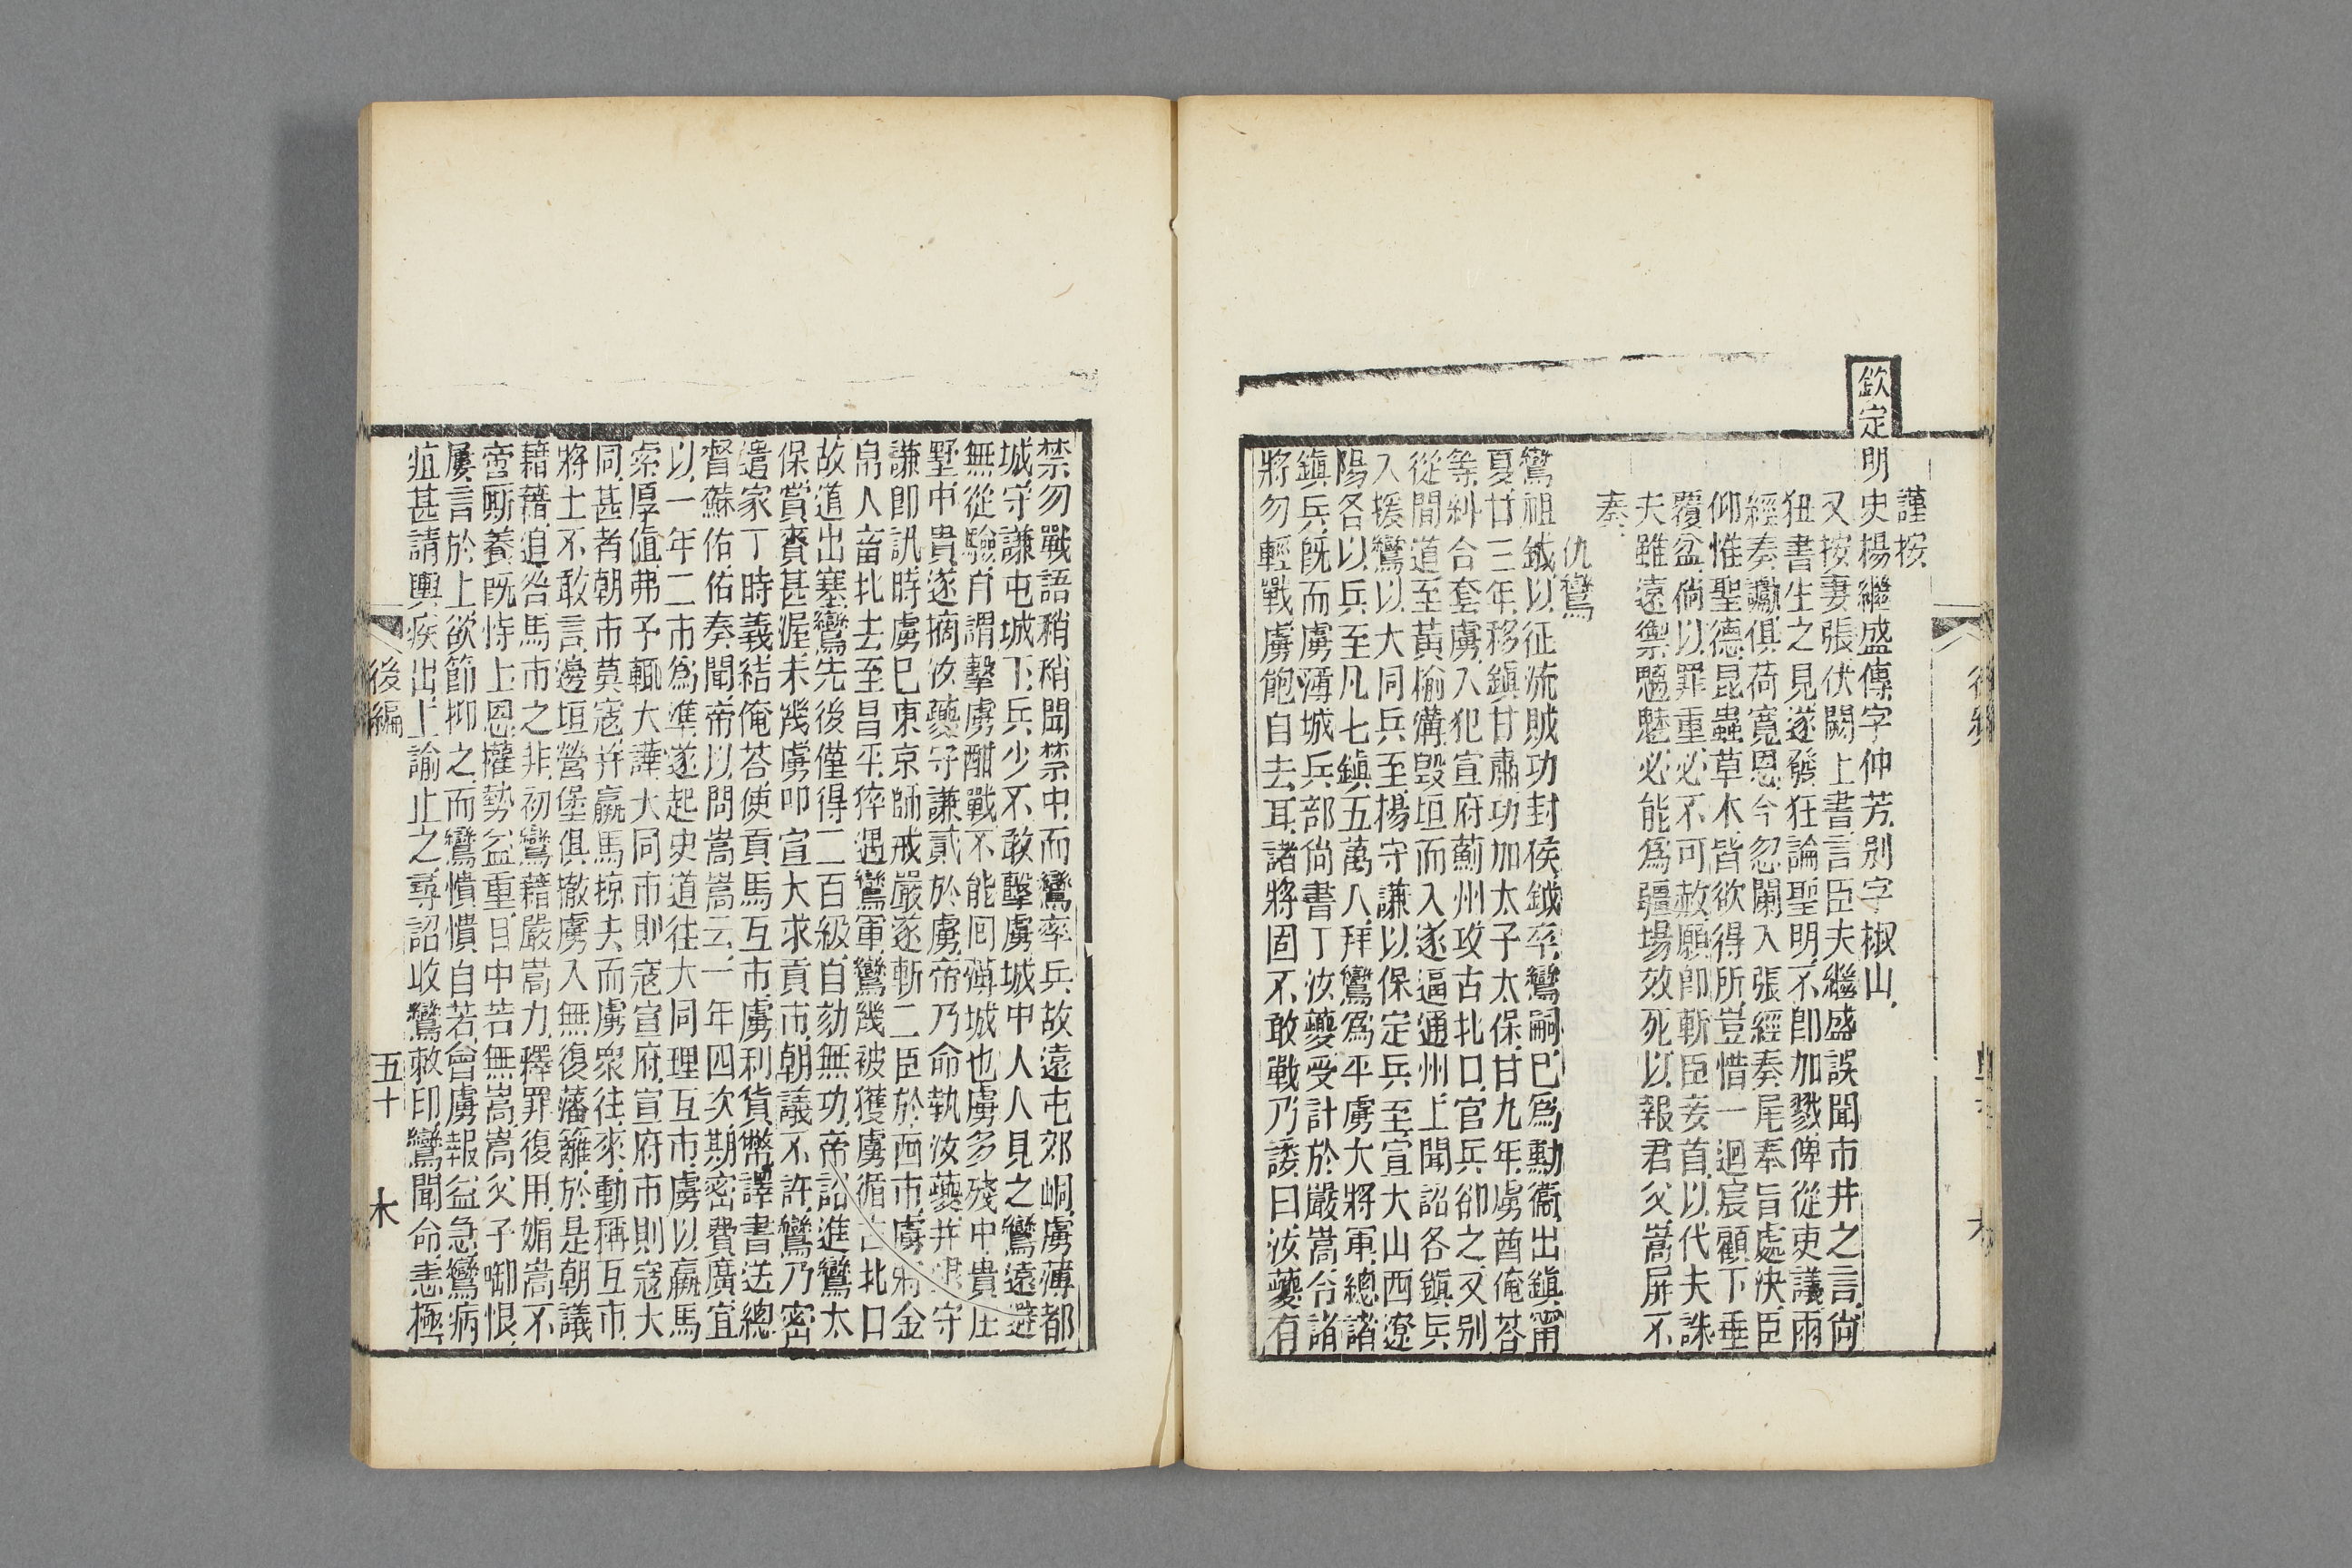 謹按
欽定明史楊繼盛傳字仲芳別字椒山
又按妻張伏闕上書言臣夫繼盛誤聞市井之言尙
狃書生之見遂發狂論聖明不卽加戮俾從吏議兩
經奏讞俱荷寬恩今忽闌入張經奏尾奉旨處決臣
仰惟聖德昆蟲草木皆欲得所豈惜一迴宸顧下垂
覆盆倘以罪重必不可赦願卽斬臣妾首以代夫誅
夫雖遠禦魑魅必能爲疆場效死以報君父嵩屏不
奏
仇鸞
鸞祖鉞以征流賊功封侯鉞卒鸞嗣已爲勳衞出鎭甯
夏廿三年移鎭甘肅功加太子太保廿九年虜酋俺荅
等糾合套虜入犯宣府薊州攻古北口官兵卻之又別
從間道至黃榆溝毀垣而入遂逼通州上聞詔各鎭兵
入援鸞以大同兵至楊守謙以保定兵至宣大山西遼
陽各以兵至凡七鎭五萬人拜鸞爲平虜大將軍總諸
鎭兵旣而虜薄城兵部尙書丁汝夔受計於嚴嵩令諸
將勿輕戰虜飽自去耳諸將固不敢戰乃諉曰汝夔有
禁勿戰語稍稍聞禁中而鸞率兵故遠屯郊峒虜薄都
城守謙屯城下兵少不敢擊虜城中人人見之鸞遠避
無從驗盲謂擊虜酣戰不能囘薄城也虜多殘中貴庄
墅中貴遂摘汝夔守謙貳於虜帝乃命執汝夔并守
謙卽訊時虜已東京師戒嚴遂斬二臣於西市虜將金
帛人畜北去至昌平猝遇鸞軍鸞幾被獲虜循古北口
故道出塞鸞先後僅得二百級自劾無功帝詔進鸞太
保賞賚甚渥未幾虜叩宣大求貢市朝議不許鸞乃密
遣家丁時義結俺荅使貢馬互市虜利貨幣譯書送總
督蘇佑佑奏聞帝以問嵩嵩云一年四次期密費廣宜
以一年二市爲準遂起史道往大同理互市虜以羸馬
索厚值弗予輒大譁大同市則寇宣府宣府市則寇大
同甚者朝市莫寇幷羸馬掠夫而虜衆往來動稱互市
將士不敢言邊垣營堡俱撤虜入無復藩籬於是朝議
藉藉追咎馬市之非初鸞藉嚴嵩力釋罪復用媚嵩不
啻廝養旣恃上恩權勢益重目中若無嵩嵩父子啣恨
屢言於上欲節抑之而鸞憒憒自若會虜報益急鸞病
疽甚請輿疾出上諭止之尋詔收鸞敕印鸞聞命恚極
後編
五十
木